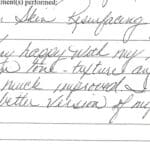 ment(s) performed:
Skin Resurfacing
happy with my
tone - texture an
much improved. I
better version of my